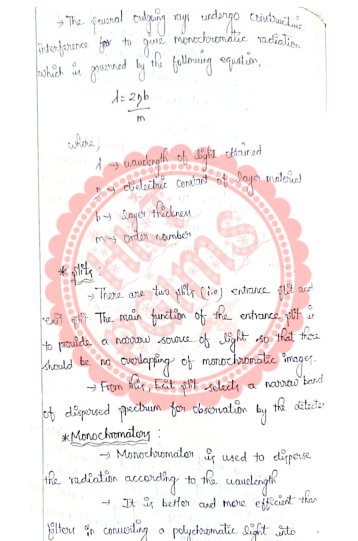 → The several outgoing rays undergo constructive
interference for to give monochromatic radiation
which is governed by the following equation,
λ = 2ηb
m
where,
λ → wavelength of light obtained
η → dielectric constant of layer material
b → layer thickness
m → order number
* Slits :
→ There are two slits (i.e) entrance slit and
exit slit The main function of the entrance slit is
to provide a narrow source of light so that there
should be no overlapping of monochromatic images.
→ From this, Exit slit selects a narrow band
of dispersed spectrum for observation by the detector
* Monochromators :
→ Monochromator is used to disperse
the radiation according to the wavelength
→ It is better and more efficient than
filters in converting a polychromatic light into